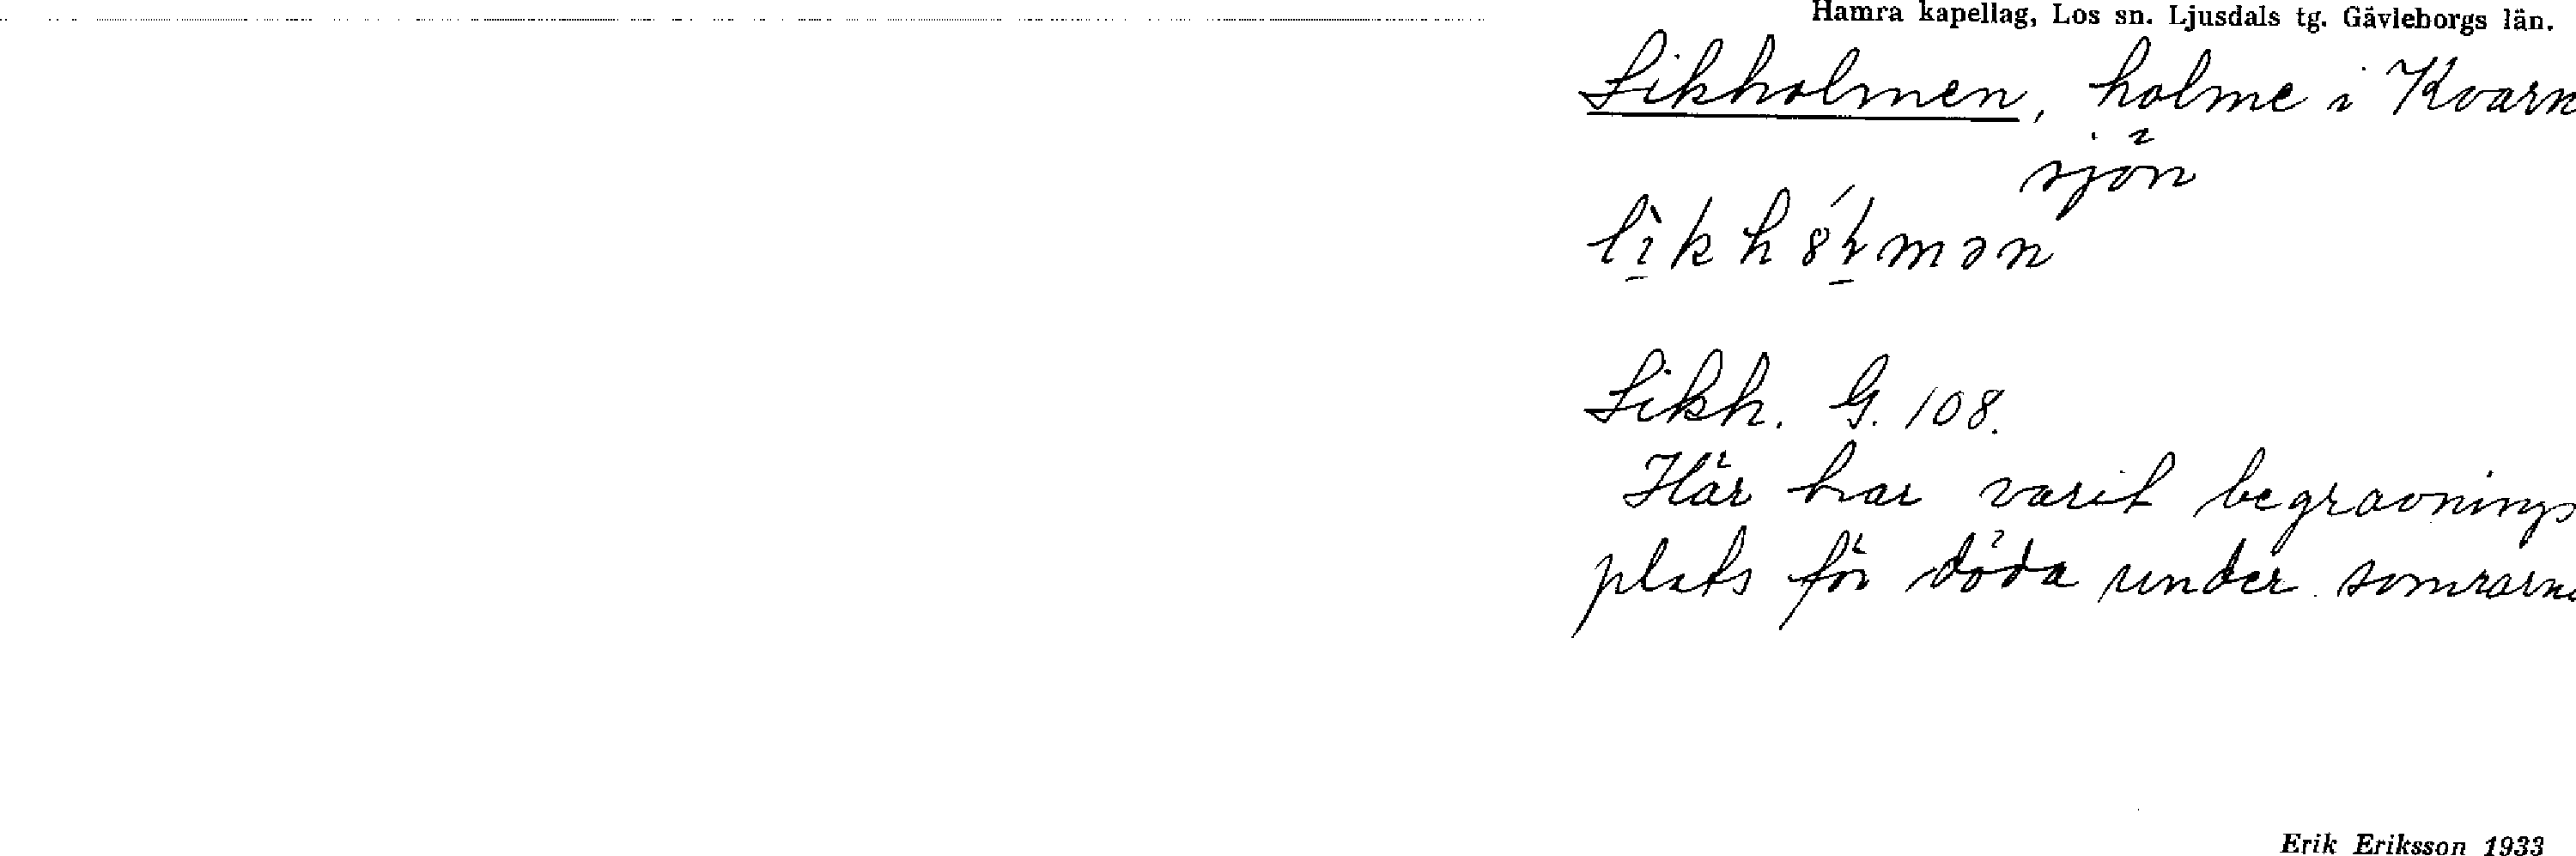 Hamra kapellag, Los sn. Ljusdals tg. Gävleborgs län.
Likholmen, holme i Kvarn
sjön
Likh. G. 108.
Här har varit begravnings
plats för döda under somrarna
Erik Eriksson 1933